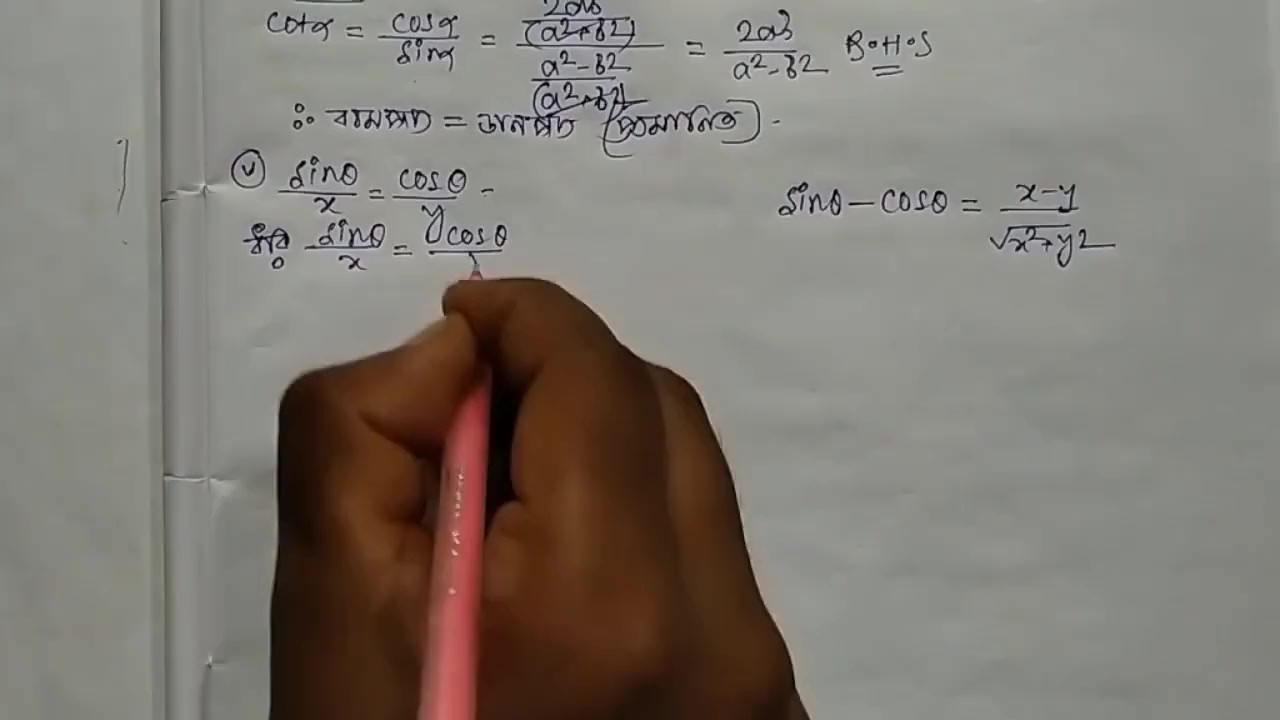 cotα = cosα/sinα = (2ab/(a²+b²))/((a²-b²)/(a²+b²)) = 2ab/(a²-b²) R.H.S
∴ বামপক্ষ = ডানপক্ষ (প্রমানিত).
(v) sinθ/x = cosθ/y - sinθ - cosθ = (x-y)/√(x²+y²)
ধরি, sinθ/x = cosθ/y